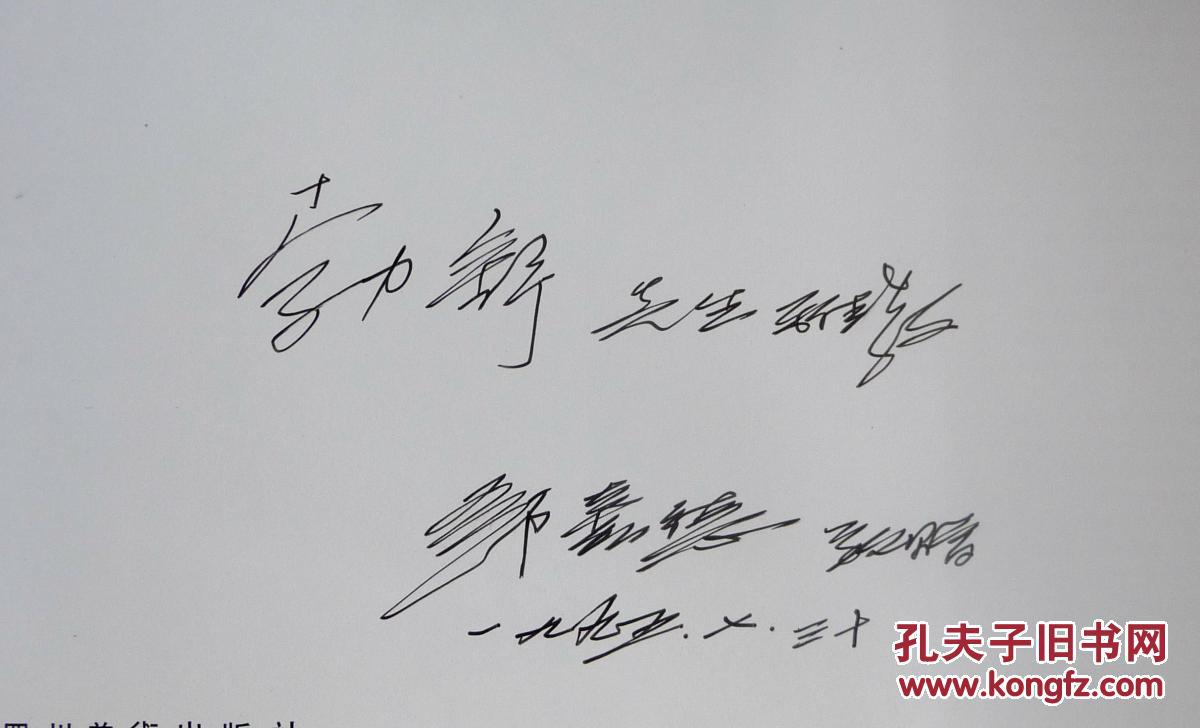 勃舒先生
敬贈
一九九五.七.三十
孔夫子旧书网
www.kongfz.com
四川美術出版社